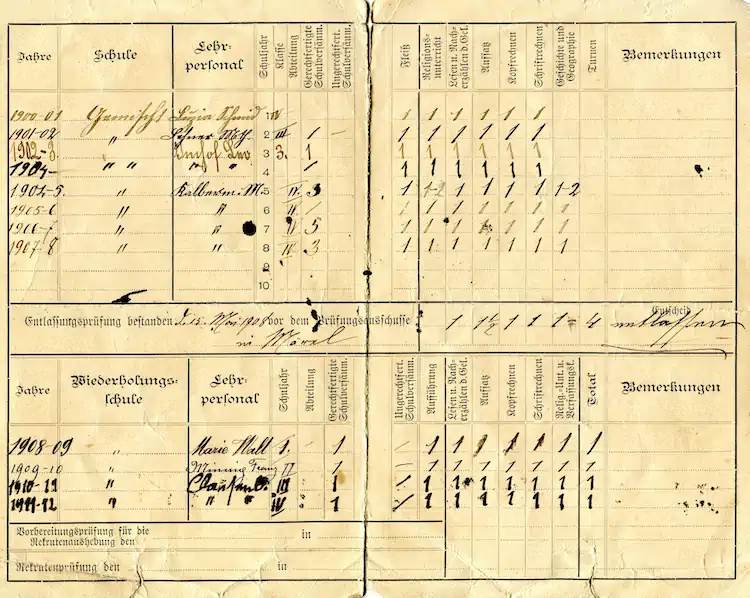 Jahre Schule Lehr-personal Schuljahr Klasse Abteilung Gerechtfertigte Schulversäum. Ungerechtfert. Schulversäum. Fleiß Religions-unterricht Lesen u. Nach-erzählen d. Gel. Aufsatz Kopfrechnen Schriftrechnen Geschichte und Geographie Turnen Bemerkungen
1900-01 Gemischt Luzia Schmid 1 IV 1 1 1 1 1 1
1901-02 " 2 III 1 – 1 1 1 1 1 1
1902-3. Imhof Leo 3 3. 1 1 1 1 1 1 1
1904- " " " " 4 1 1 1 1 1 1
1904-5. " Kalberm. M. 5 IV. 3 1 1-2 1 1 1 1 1-2
1905-6 " " 6 II. 1 1 1 1 1 1 1
1906-7 " " 7 5 1 1 1 1 1 1 1
1907-8 " " 8 IV 3 1 1 1 1 1 1 1
9
10
Entlassungsprüfung bestanden d. 15. Mai 1908 vor dem Prüfungsausschusse 1 1½ 1 1 1 = 4 Entscheid
in Mörel entlassen
Jahre Wiederholungs-schule Lehr-personal Schuljahr Abteilung Gerechtfertigte Schulversäum. Ungerechtfert. Schulversäum. Aufführung Lesen u. Nach-erzählen d. Gel. Aufsatz Kopfrechnen Schriftrechnen Relig.-Unt. u. Verfassungsk. Total Bemerkungen
1908-09 " Marie I. – 1 – 1 1 1 1 1 1 1
1909-10 " Minnig Franz II – 1 – 1 1 1 1 1 1 1
1910-11 " Clausen III 1 1 1 1 1 1 1 1
1911-12 " " " IV " 1 1 1 1 1 1 1 1
Vorbereitungsprüfung für die
Rekrutenaushebung den in
Rekrutenprüfung den in